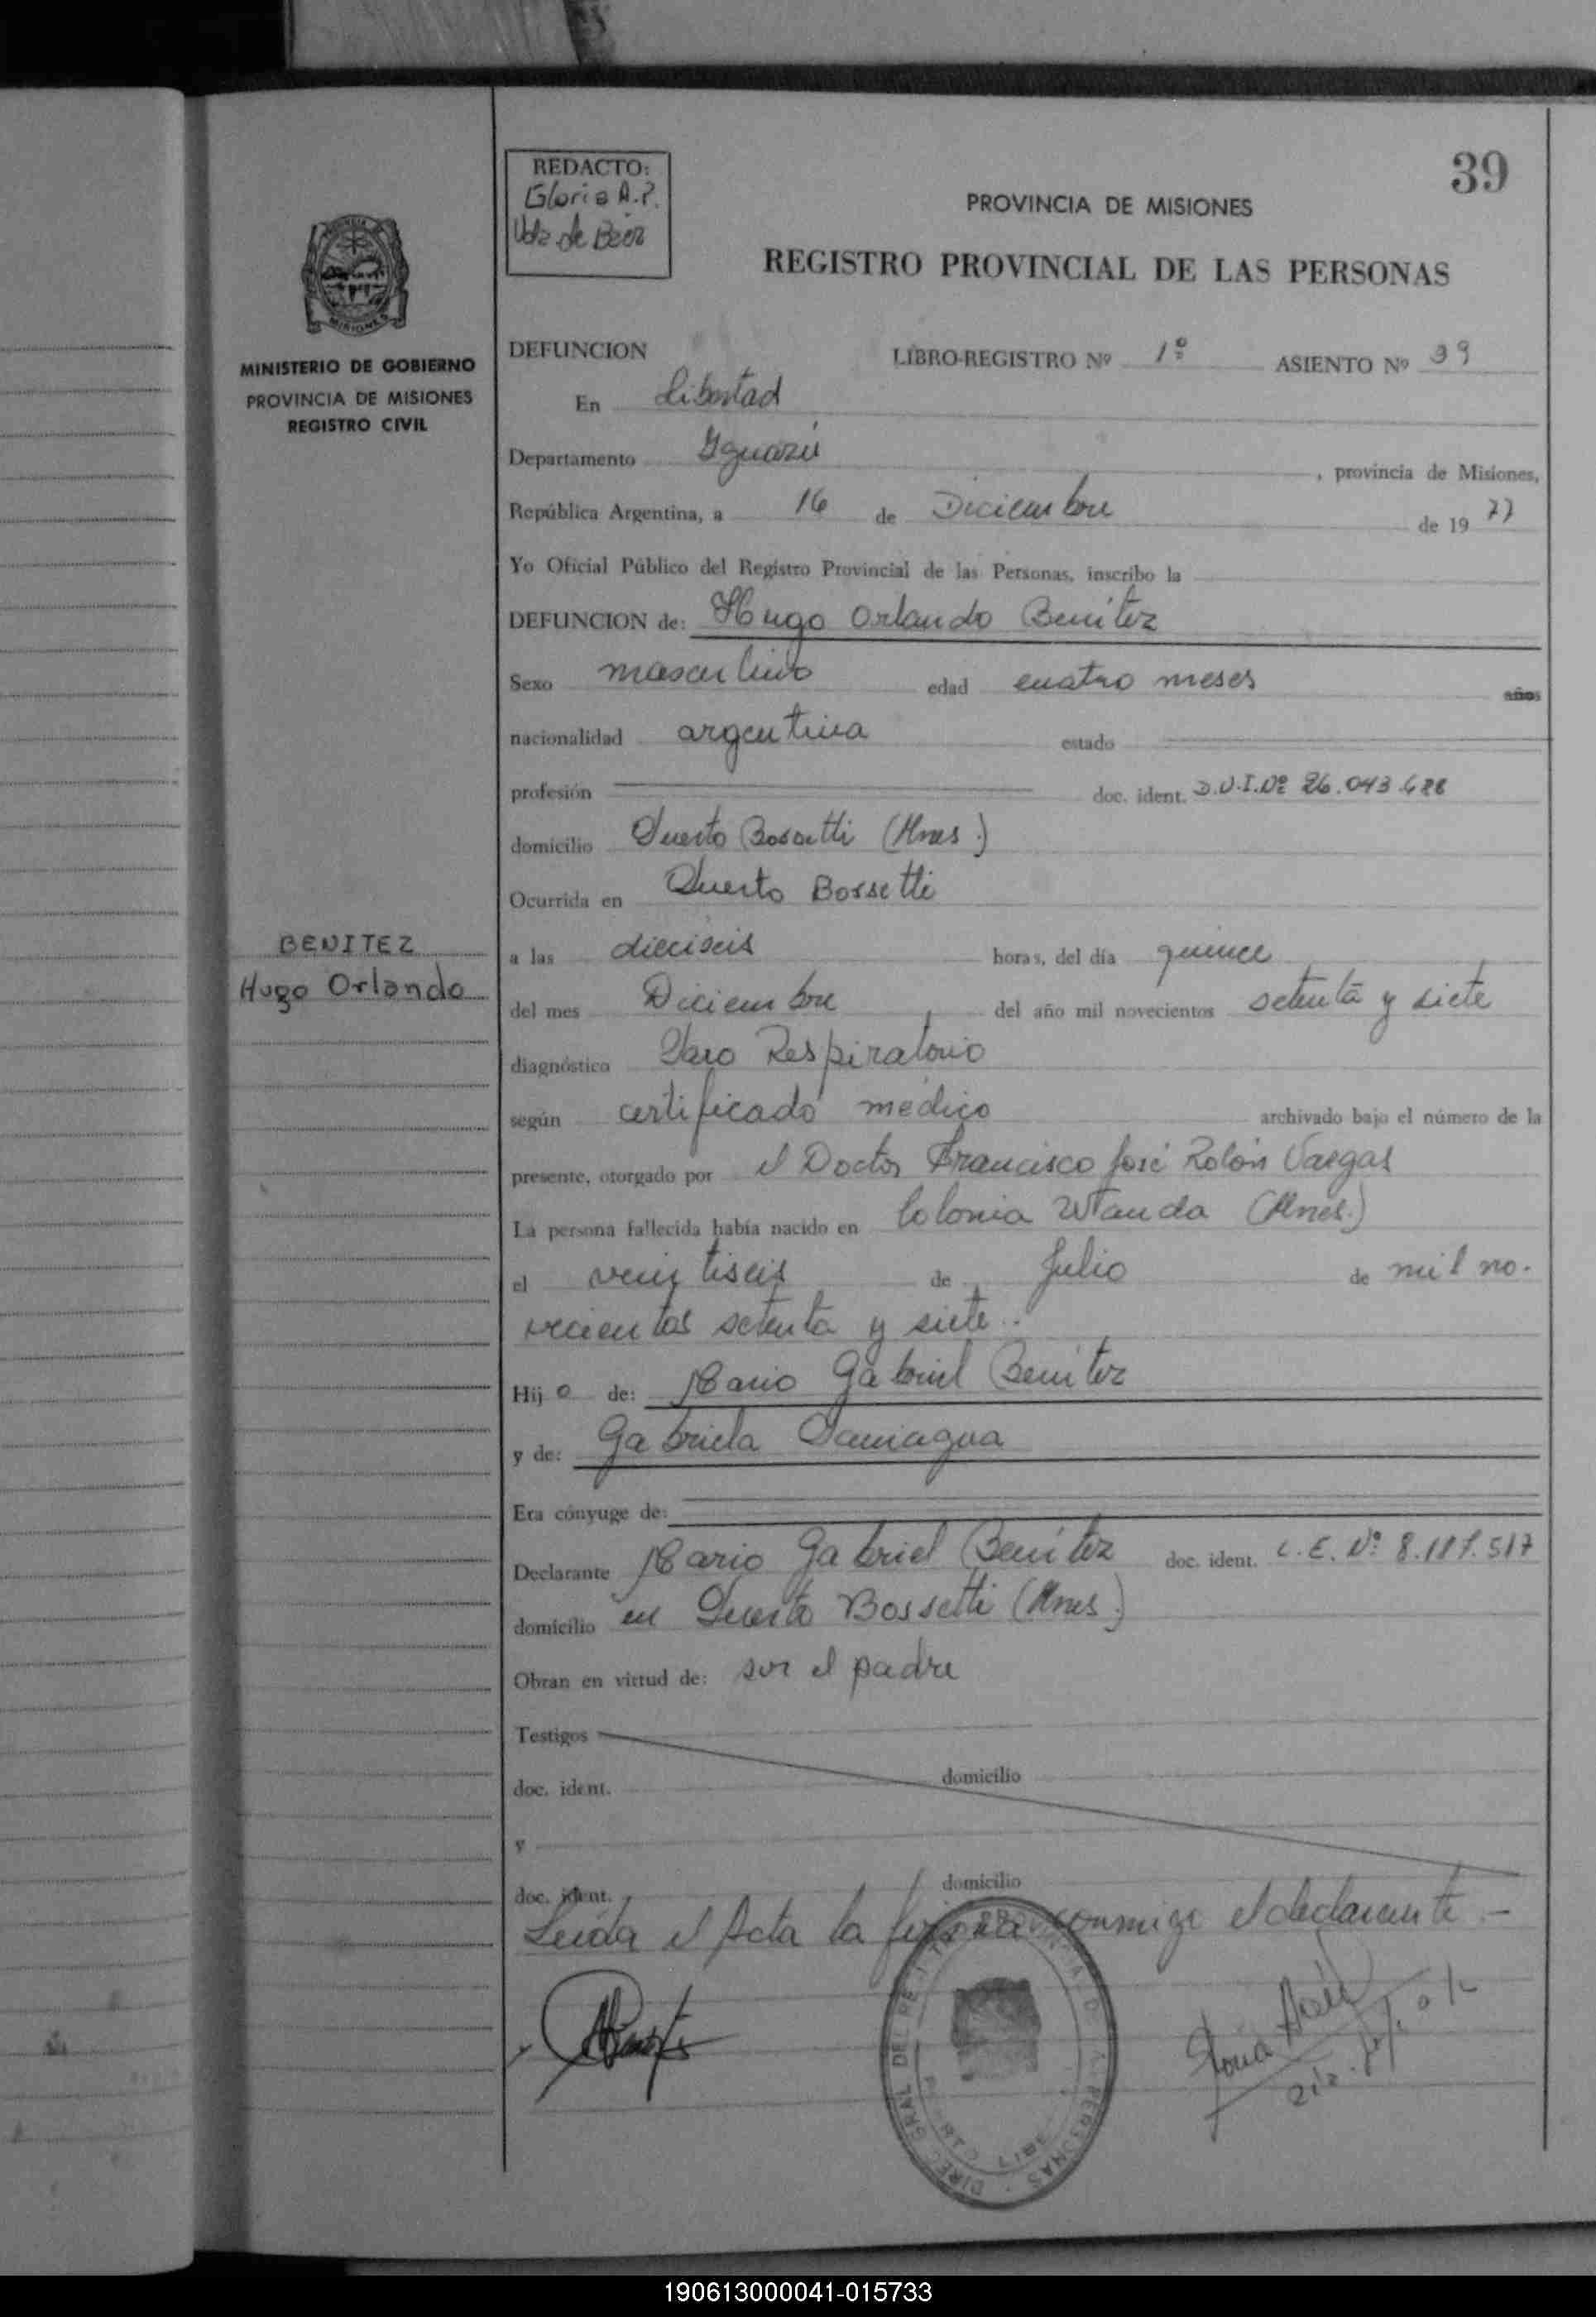 39
REDACTO:
Gloria A.P.
Vda de Báez
PROVINCIA DE MISIONES
REGISTRO PROVINCIAL DE LAS PERSONAS
MINISTERIO DE GOBIERNO
PROVINCIA DE MISIONES
REGISTRO CIVIL
DEFUNCION LIBRO-REGISTRO Nº 1º ASIENTO Nº 39
En Libertad
Departamento Iguazú , provincia de Misiones,
República Argentina, a 16 de Diciembre de 19 77
Yo Oficial Público del Registro Provincial de las Personas, inscribo la
DEFUNCION de: Hugo Orlando Benitez
Sexo masculino edad cuatro meses años
nacionalidad argentina estado
profesión doc. ident. D.N.I.Nº 26.043.688
domicilio Puerto Bossetti (Mnes.)
Ocurrida en Puerto Bossetti
BENITEZ
Hugo Orlando
a las dieciseis horas, del día quince
del mes Diciembre del año mil novecientos setenta y siete
diagnóstico Paro Respiratorio
según certificado médico archivado bajo el número de la
presente, otorgado por el Doctor Francisco José Rolón Vargas
La persona fallecida había nacido en Colonia Wanda (Mnes.)
el veintiseis de Julio de mil no-
vecientos setenta y siete.
Hij o de: Mario Gabriel Benitez
y de: Gabriela Paniagua
Era cónyuge de:
Declarante Mario Gabriel Benitez doc. ident. L.E. Nº 8.187.517
domicilio en Puerto Bossetti (Mnes.)
Obran en virtud de: ser el padre
Testigos
doc. ident. domicilio
y
doc. ident. domicilio
Leída el Acta la firma conmigo el declarante.-
190613000041-015733